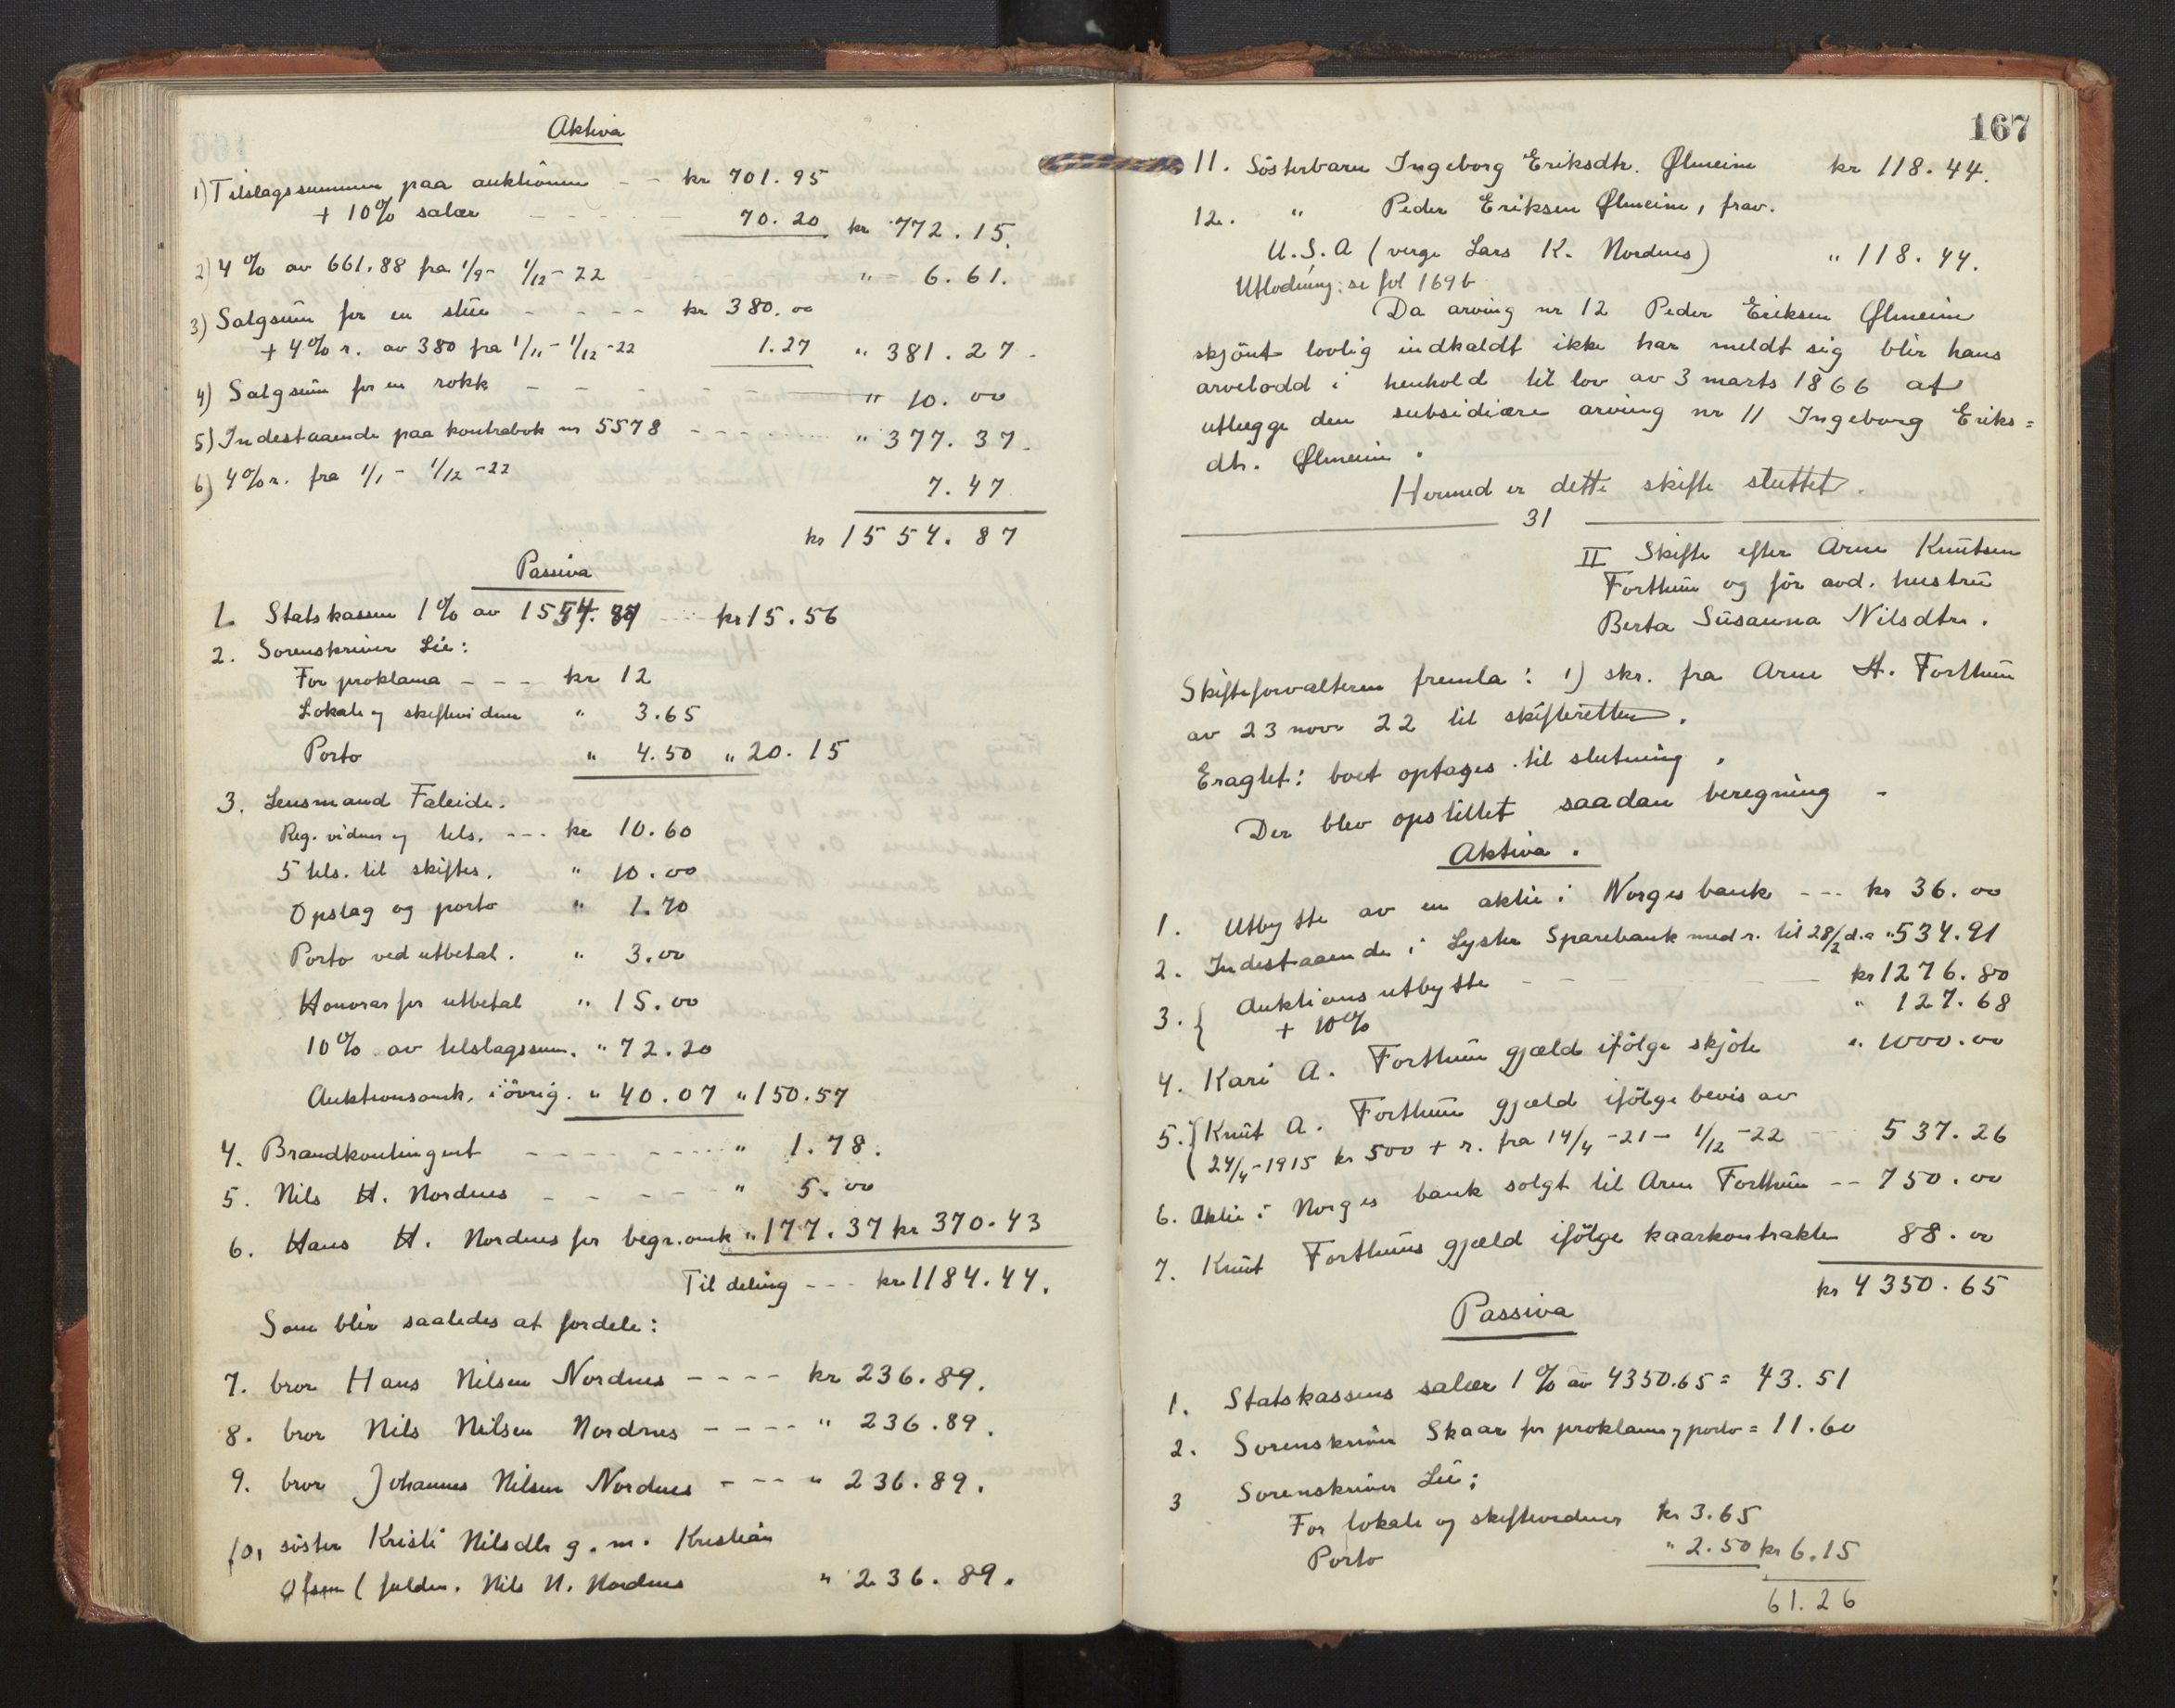 Aktiva
1) Tilslagssummen paa auktionen - - kr 701.95
+ 10% salær - - - - - 70.20 kr 772.15.
2) 4% av 661.88 fra 1/9 - 1/12 - 22 " 6.61.
3) Salgsum for en stue - - - - - kr 380.00
+ 4% r. av 380 fra 1/11 - 1/12 - 22 1.27 " 381.27.
4) Salgsum for en rokk - - - - " 10.00
5) Indestaaende paa kontrabok nr 5578 - - - " 377.37.
6) 4% r. fra 1/1 - 1/12 - 22 7.47
kr 1554.87
Passiva
1. Statskassen 1% av 1554.87 kr 15.56
2. Sorenskriver Lie:
For proklama - - - kr 12
Lokale og skiftevidner " 3.65
Porto " 4.50 " 20.15
3. Lensmand Faleide.
Reg. vidner og tils. - - - kr 10.60
5 tils. til skiftes. " 10.00
Opslag og porto " 1.70
Porto ved utbetal. " 3.00
Honorar for utbetal " 15.00
10% av tilslagssum. " 72.20
Auktionsomk. i övrig. " 40.07 " 150.57
4. Brandkontingent - - - - - " 1.78.
5. Nils H. Nordnes - - - - " 5.00
6. Hans H. Nordnes for begr. omk " 177.37 kr 370.43
Til deling - - - kr 1184.44.
Som blir saaledes at fordele:
7. bror Hans Nilsen Nordnes - - - - kr 236.89.
8. bror Nils Nilsen Nordnes - - - - " 236.89.
9. bror Johannes Nilsen Nordnes - - - " 236.89.
10. söster Kristi Nilsdtr g. m. Kristian
(fuldm. Nils N. Nordnes " 236.89.
167
11. Sösterbarn Ingeborg Eriksdtr. Ølmeim kr 118.44.
12. " Peder Eriksen Ølmeim, frav.
U.S.A (verge Lars K. Nordnes) " 118.44.
Utlodning: se fol 169b
Da arving nr 12 Peder Eriksen Ølmeim
skjönt lovlig indkaldt ikke har meldt sig blir hans
arvelodd i henhold til lov av 3 marts 1866 at
utlægge den subsidiære arving nr 11 Ingeborg Eriks=
dtr. Ølmeim.
Hermed er dette skifte sluttet.
31
II Skifte efter Arne Knutsen
Forthun og för avd. hustru
Berta Susanna Nilsdtr.
Skifteforvalteren fremla: 1) skr. fra Arne H. Forthun
av 23 novr 22 til skifteretten.
Eragtet: boet optages til slutning.
Der blev opstillet saadan beregning -
Aktiva.
1. Utbytte av en aktie i Norges bank - - - kr 36.00
2. Indestaaende i Lyster Sparebank med r. til 28/2 d.a " 534.91
3. { Auktions utbytte - - - kr 1276.80
+ 10% " 127.68
4. Kari A. Forthun gjæld ifölge skjöte " 1000.00
5. { Knut A. Forthun gjæld ifölge bevis av
24/4 - 1915 kr 500 + r. fra 14/4 - 21 - 1/12 - 22 537.26
6. Aktie i Norges bank solgt til Arne Forthun - - 750.00
7. Knut Forthuns gjæld ifölge kaarkontrakten 88.00
kr 4350.65
Passiva
1. Statskassens salær 1% av 4350.65 = 43.51
2. Sorenskriver Skaar for proklama og porto = 11.60
3 Sorenskriver Lie:
For lokale og skiftevidner kr 3.65
Porto " 2.50 kr 6.15
61.26